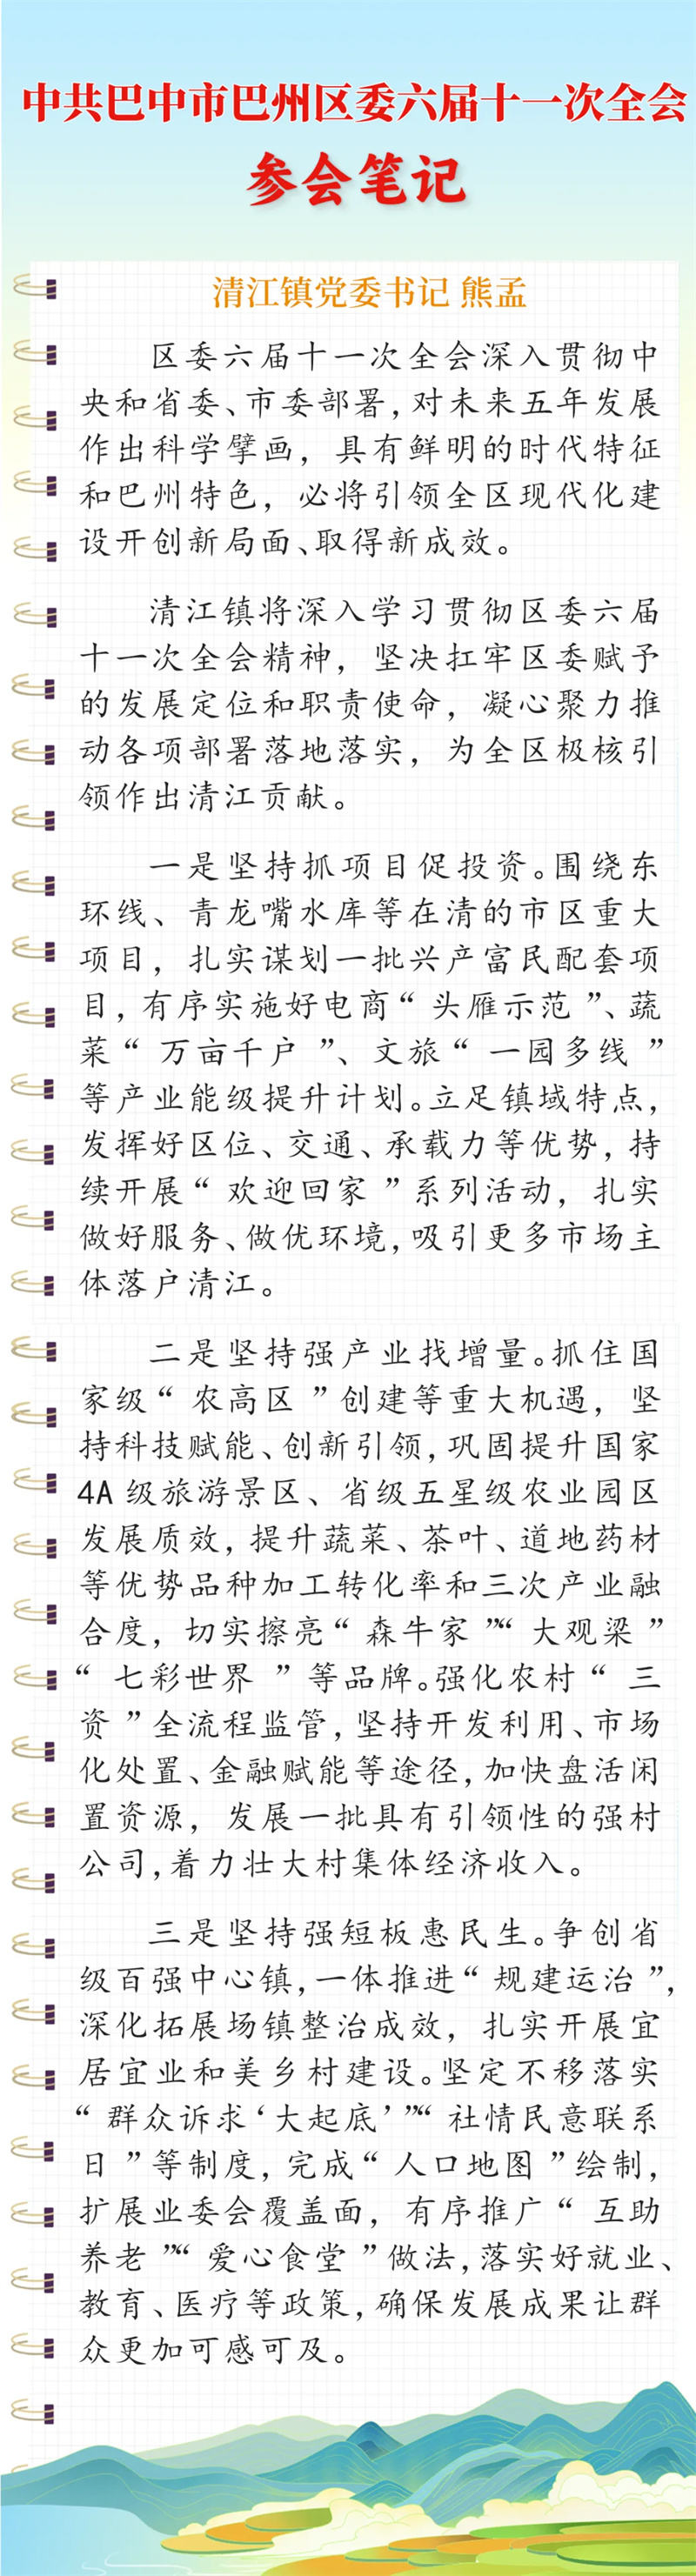 中共巴中市巴州区委六届十一次全会
参会笔记
清江镇党委书记 熊孟
区委六届十一次全会深入贯彻中
央和省委、市委部署,对未来五年发展
作出科学擘画，具有鲜明的时代特征
和巴州特色，必将引领全区现代化建
设开创新局面、取得新成效。
清江镇将深入学习贯彻区委六届
十一次全会精神，坚决扛牢区委赋予
的发展定位和职责使命，凝心聚力推
动各项部署落地落实，为全区极核引
领作出清江贡献。
一是坚持抓项目促投资。围绕东
环线、青龙嘴水库等在清的市区重大
项目，扎实谋划一批兴产富民配套项
目,有序实施好电商“头雁示范”、蔬
菜“万亩千户”、文旅“一园多线”
等产业能级提升计划。立足镇域特点,
发挥好区位、交通、承载力等优势,持
续开展“欢迎回家”系列活动，扎实
做好服务、做优环境,吸引更多市场主
体落户清江。
二是坚持强产业找增量。抓住国
家级“农高区”创建等重大机遇，坚
持科技赋能、创新引领,巩固提升国家
4A 级旅游景区、省级五星级农业园区
发展质效,提升蔬菜、茶叶、道地药材
等优势品种加工转化率和三次产业融
合度，切实擦亮“森牛家”“大观梁”
“七彩世界”等品牌。强化农村“三
资”全流程监管,坚持开发利用、市场
化处置、金融赋能等途径,加快盘活闲
置资源，发展一批具有引领性的强村
公司,着力壮大村集体经济收入。
三是坚持强短板惠民生。争创省
级百强中心镇,一体推进“规建运治”,
深化拓展场镇整治成效，扎实开展宜
居宜业和美乡村建设。坚定不移落实
“群众诉求‘大起底’”“社情民意联系
日”等制度,完成“人口地图”绘制,
扩展业委会覆盖面，有序推广“互助
养老”“爱心食堂”做法,落实好就业、
教育、医疗等政策,确保发展成果让群
众更加可感可及。